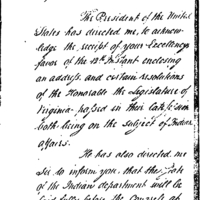 The President of the United
States has directed me, to acknow-
ledge the receipt of your Excellency's
favor of the 12th Instant enclosing
an address and certain resolutions
of the Honorable the Legislature of
Virginia passed in their late session
both being on the subject of Indian
affairs.
He has also directed me
Sir, to inform you, that the state
of the Indian department will be
before the Congress at